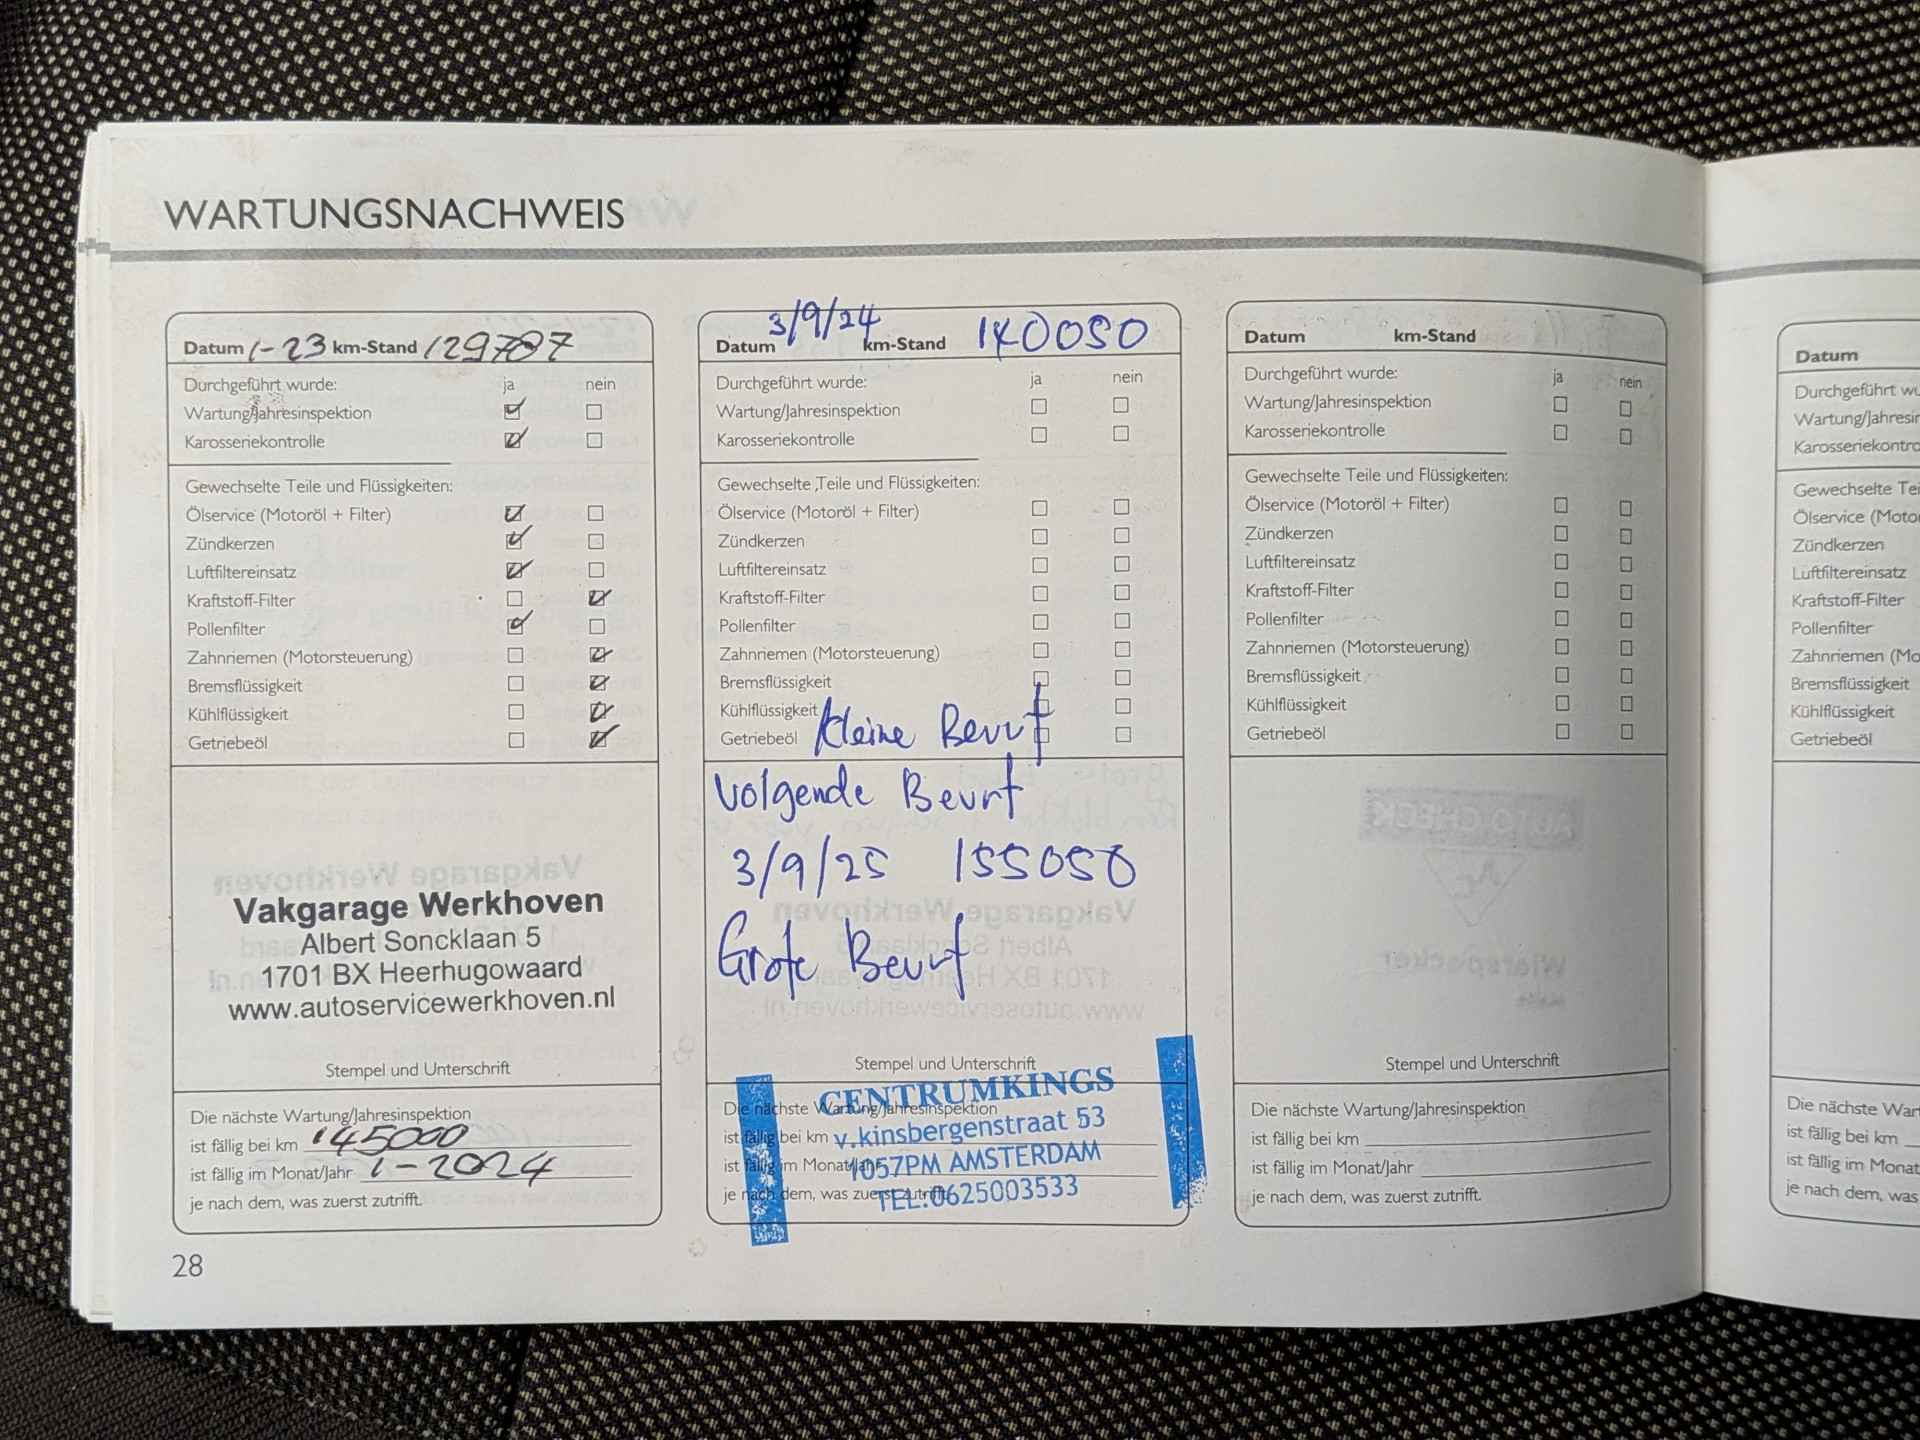 WARTUNGSNACHWEIS
Datum 1-23 km-Stand 129787
Durchgeführt wurde: ja nein
Wartung/Jahresinspektion
Karosseriekontrolle
Gewechselte Teile und Flüssigkeiten:
Ölservice (Motoröl + Filter)
Zündkerzen
Luftfiltereinsatz
Kraftstoff-Filter
Pollenfilter
Zahnriemen (Motorsteuerung)
Bremsflüssigkeit
Kühlflüssigkeit
Getriebeöl
Vakgarage Werkhoven
Albert Soncklaan 5
1701 BX Heerhugowaard
www.autoservicewerkhoven.nl
Stempel und Unterschrift
Die nächste Wartung/Jahresinspektion
ist fällig bei km 145000
ist fällig im Monat/Jahr 1-2024
je nach dem, was zuerst zutrifft.
28
Datum 3/9/24 km-Stand 140050
Durchgeführt wurde: ja nein
Wartung/Jahresinspektion
Karosseriekontrolle
Gewechselte Teile und Flüssigkeiten:
Ölservice (Motoröl + Filter)
Zündkerzen
Luftfiltereinsatz
Kraftstoff-Filter
Pollenfilter
Zahnriemen (Motorsteuerung)
Bremsflüssigkeit
Kühlflüssigkeit
Getriebeöl Kleine Beurt
Volgende Beurt
3/9/25 155050
Grote Beurt
Stempel und Unterschrift
CENTRUMKINGS
Die nächste Wartung/Jahresinspektion
v.kinsbergenstraat 53
ist fällig bei km
1057PM AMSTERDAM
ist fällig im Monat/Jahr
TEL.0625003533
je nach dem, was zuerst zutrifft.
Datum km-Stand
Durchgeführt wurde: ja nein
Wartung/Jahresinspektion
Karosseriekontrolle
Gewechselte Teile und Flüssigkeiten:
Ölservice (Motoröl + Filter)
Zündkerzen
Luftfiltereinsatz
Kraftstoff-Filter
Pollenfilter
Zahnriemen (Motorsteuerung)
Bremsflüssigkeit
Kühlflüssigkeit
Getriebeöl
Stempel und Unterschrift
Die nächste Wartung/Jahresinspektion
ist fällig bei km
ist fällig im Monat/Jahr
je nach dem, was zuerst zutrifft.
Datum
Durchgeführt
Gewechselte
Zündkerzen
Luftfiltereinsatz
Kraftstoff-Filter
Pollenfilter
Zahnriemen
Bremsflüssigkeit
Kühlflüssigkeit
Getriebeöl
Die nächste
ist fällig bei km
ist fällig im
je nach dem, was